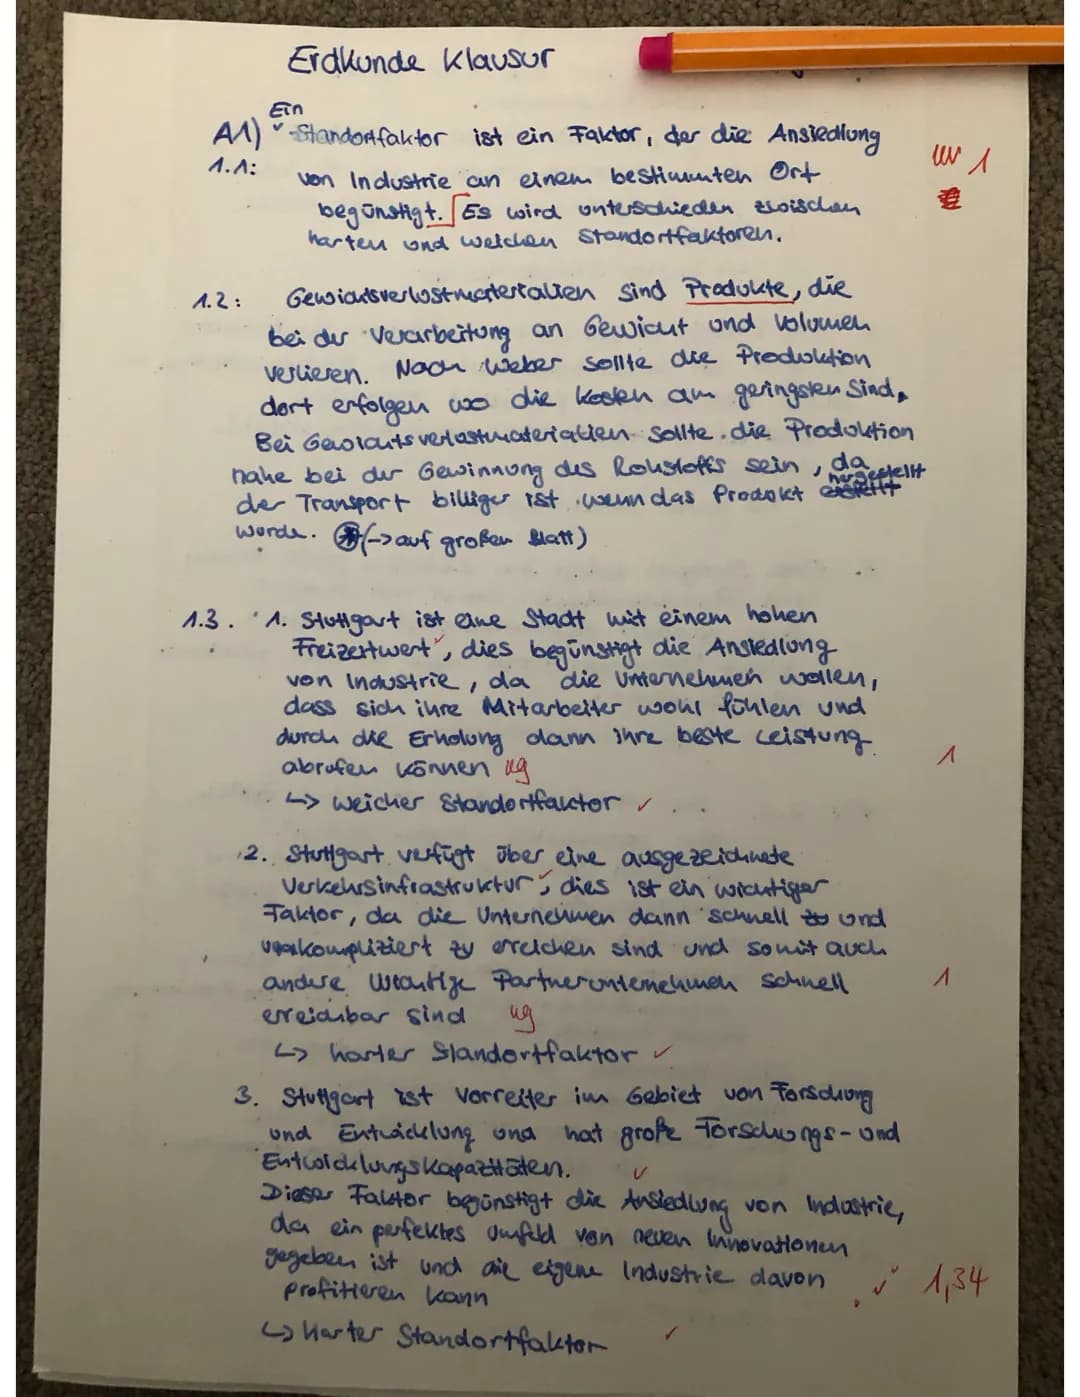 Erdkunde Klausur
Ein
A1) Standortfaktor ist ein Faktor, der die Ansiedlung
1.1: von Industrie an einem bestimmten Ort
1
begünstigt. Es wird unterschieden zwischen
harten und weichen Standortfaktoren.
1.2: Gewichtsverlustmaterialien sind Produkte, die
bei der Verarbeitung an Gewicht und Volumen
verlieren. Nach Weber sollte die Produktion
dort erfolgen wo die Kosten am geringsten sind.
Bei Gewichtsverlustmaterialien sollte die Produktion
nahe bei der Gewinnung des Rohstoffs sein, da
der Transport billiger ist wenn das Produkt hergestellt
wurde. (-> auf großen Blatt)
1.3. 1. Stuttgart ist eine Stadt mit einem hohen
Freizeitwert, dies begünstigt die Ansiedlung
von Industrie, da die Unternehmen wollen,
dass sich ihre Mitarbeiter wohl fühlen und
durch die Erholung dann ihre beste Leistung
abrufen können ug
1
↳ weicher Standortfaktor ✓
2. Stuttgart verfügt über eine ausgezeichnete
Verkehrsinfrastruktur, dies ist ein wichtiger
Faktor, da die Unternehmen dann schnell und
unkompliziert zu erreichen sind und somit auch
andere wichtige Partnerunternehmen schnell
1
erreichbar sind ug
↳ harter Standortfaktor ✓
3. Stuttgart ist Vorreiter im Gebiet von Forschung
und Entwicklung und hat große Forschungs- und
Entwicklungskapazitäten. ✓
Dieser Faktor begünstigt die Ansiedlung von Industrie,
da ein perfektes Umfeld von neuen Innovationen
gegeben ist und die eigene Industrie davon
profitieren kann ✓ 1,34
↳ Harter Standortfaktor ✓